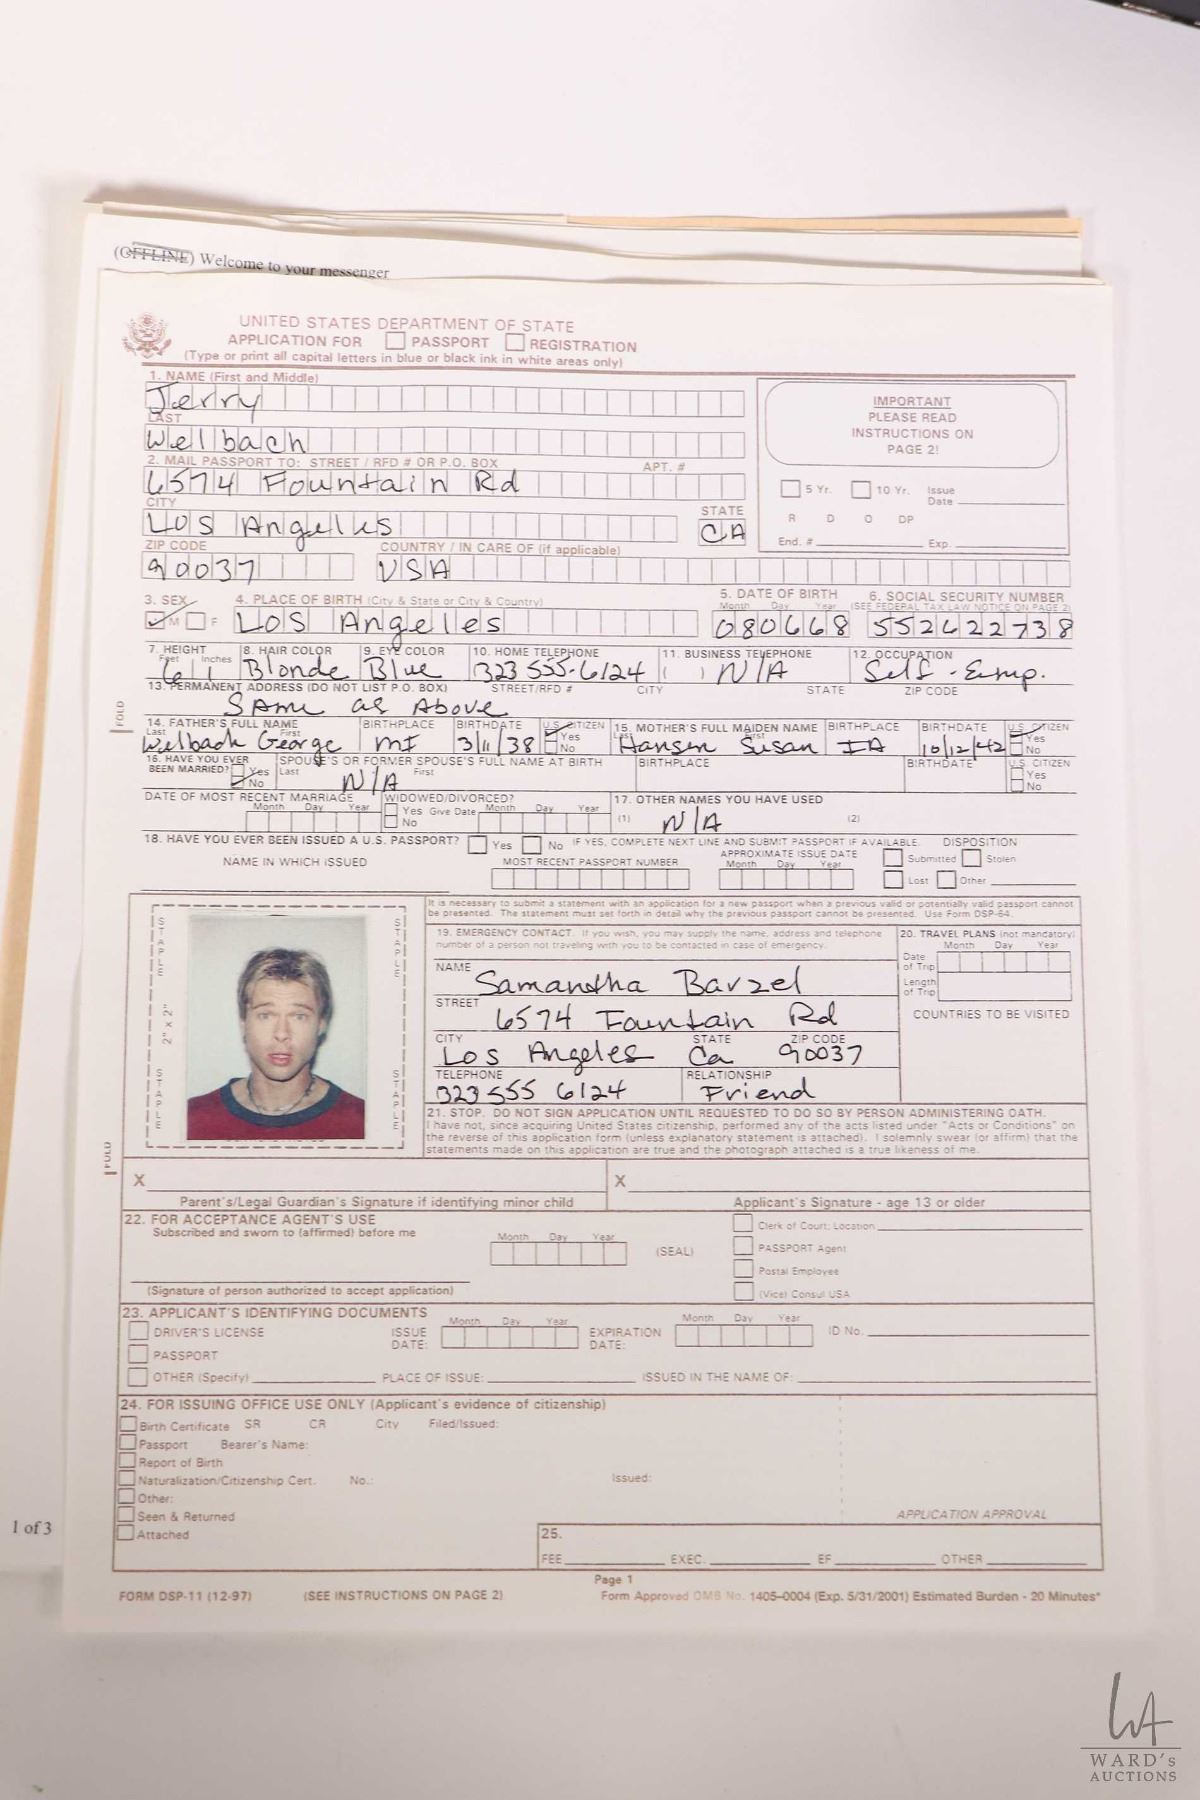 (OFFLINE) Welcome to your messenger
UNITED STATES DEPARTMENT OF STATE
APPLICATION FOR PASSPORT REGISTRATION
(Type or print all capital letters in blue or black ink in white areas only)
1. NAME (First and Middle)
Jerry
LAST
Welbach
IMPORTANT
PLEASE READ
INSTRUCTIONS ON
PAGE 2!
2. MAIL PASSPORT TO: STREET / RFD # OR P.O. BOX APT. #
6574 Fountain Rd
5 Yr. 10 Yr. Issue Date
R D O DP
End. # Exp.
CITY STATE
Los Angeles CA
ZIP CODE COUNTRY / IN CARE OF (if applicable)
90037 USA
3. SEX 4. PLACE OF BIRTH (City & State or City & Country) 5. DATE OF BIRTH 6. SOCIAL SECURITY NUMBER
Month Day Year (SEE FEDERAL TAX LAW NOTICE ON PAGE 2)
M F Los Angeles 080668 552622738
7. HEIGHT 8. HAIR COLOR 9. EYE COLOR 10. HOME TELEPHONE 11. BUSINESS TELEPHONE 12. OCCUPATION
Feet Inches
6 1 Blonde Blue 323 555-6124 ( ) N/A Self-Emp.
13. PERMANENT ADDRESS (DO NOT LIST P.O. BOX) STREET/RFD # CITY STATE ZIP CODE
Same as Above
FOLD
14. FATHER'S FULL NAME BIRTHPLACE BIRTHDATE U.S. CITIZEN 15. MOTHER'S FULL MAIDEN NAME BIRTHPLACE BIRTHDATE U.S. CITIZEN
Last First Yes Last First Yes
Welbach George MI 3/11/38 No Hansen Susan IA 10/12/42 No
16. HAVE YOU EVER BEEN MARRIED? Yes No SPOUSE'S OR FORMER SPOUSE'S FULL NAME AT BIRTH BIRTHPLACE BIRTHDATE U.S. CITIZEN
Last First Yes
N/A No
DATE OF MOST RECENT MARRIAGE WIDOWED/DIVORCED? 17. OTHER NAMES YOU HAVE USED
Month Day Year Yes Give Date Month Day Year (1) N/A (2)
No
18. HAVE YOU EVER BEEN ISSUED A U.S. PASSPORT? Yes No IF YES, COMPLETE NEXT LINE AND SUBMIT PASSPORT IF AVAILABLE. DISPOSITION
NAME IN WHICH ISSUED MOST RECENT PASSPORT NUMBER APPROXIMATE ISSUE DATE Submitted Stolen
Month Day Year Lost Other
It is necessary to submit a statement with an application for a new passport when a previous valid or potentially valid passport cannot
be presented. The statement must set forth in detail why the previous passport cannot be presented. Use Form DSP-64.
STAPLE STAPLE
2" x 2"
STAPLE STAPLE
19. EMERGENCY CONTACT. If you wish, you may supply the name, address and telephone
number of a person not traveling with you to be contacted in case of emergency.
20. TRAVEL PLANS (not mandatory)
Month Day Year
Date of Trip
Length of Trip
COUNTRIES TO BE VISITED
NAME
Samantha Barzel
STREET
6574 Fountain Rd
CITY STATE ZIP CODE
Los Angeles Ca 90037
TELEPHONE RELATIONSHIP
323 555 6124 Friend
21. STOP. DO NOT SIGN APPLICATION UNTIL REQUESTED TO DO SO BY PERSON ADMINISTERING OATH.
I have not, since acquiring United States citizenship, performed any of the acts listed under "Acts or Conditions" on
the reverse of this application form (unless explanatory statement is attached). I solemnly swear (or affirm) that the
statements made on this application are true and the photograph attached is a true likeness of me.
FOLD
X X
Parent's/Legal Guardian's Signature if identifying minor child Applicant's Signature - age 13 or older
22. FOR ACCEPTANCE AGENT'S USE
Subscribed and sworn to (affirmed) before me Month Day Year (SEAL)
Clerk of Court; Location
PASSPORT Agent
Postal Employee
(Vice) Consul USA
(Signature of person authorized to accept application)
23. APPLICANT'S IDENTIFYING DOCUMENTS
DRIVER'S LICENSE ISSUE DATE: Month Day Year EXPIRATION DATE: Month Day Year ID No.
PASSPORT
OTHER (Specify) PLACE OF ISSUE: ISSUED IN THE NAME OF:
24. FOR ISSUING OFFICE USE ONLY (Applicant's evidence of citizenship)
Birth Certificate SR CR City Filed/Issued:
Passport Bearer's Name:
Report of Birth
Naturalization/Citizenship Cert. No.: Issued:
Other:
Seen & Returned APPLICATION APPROVAL
Attached
1 of 3
25.
FEE EXEC. EF OTHER
Page 1
FORM DSP-11 (12-97) (SEE INSTRUCTIONS ON PAGE 2) Form Approved OMB No. 1405-0004 (Exp. 5/31/2001) Estimated Burden - 20 Minutes*
WA
WARD's
AUCTIONS